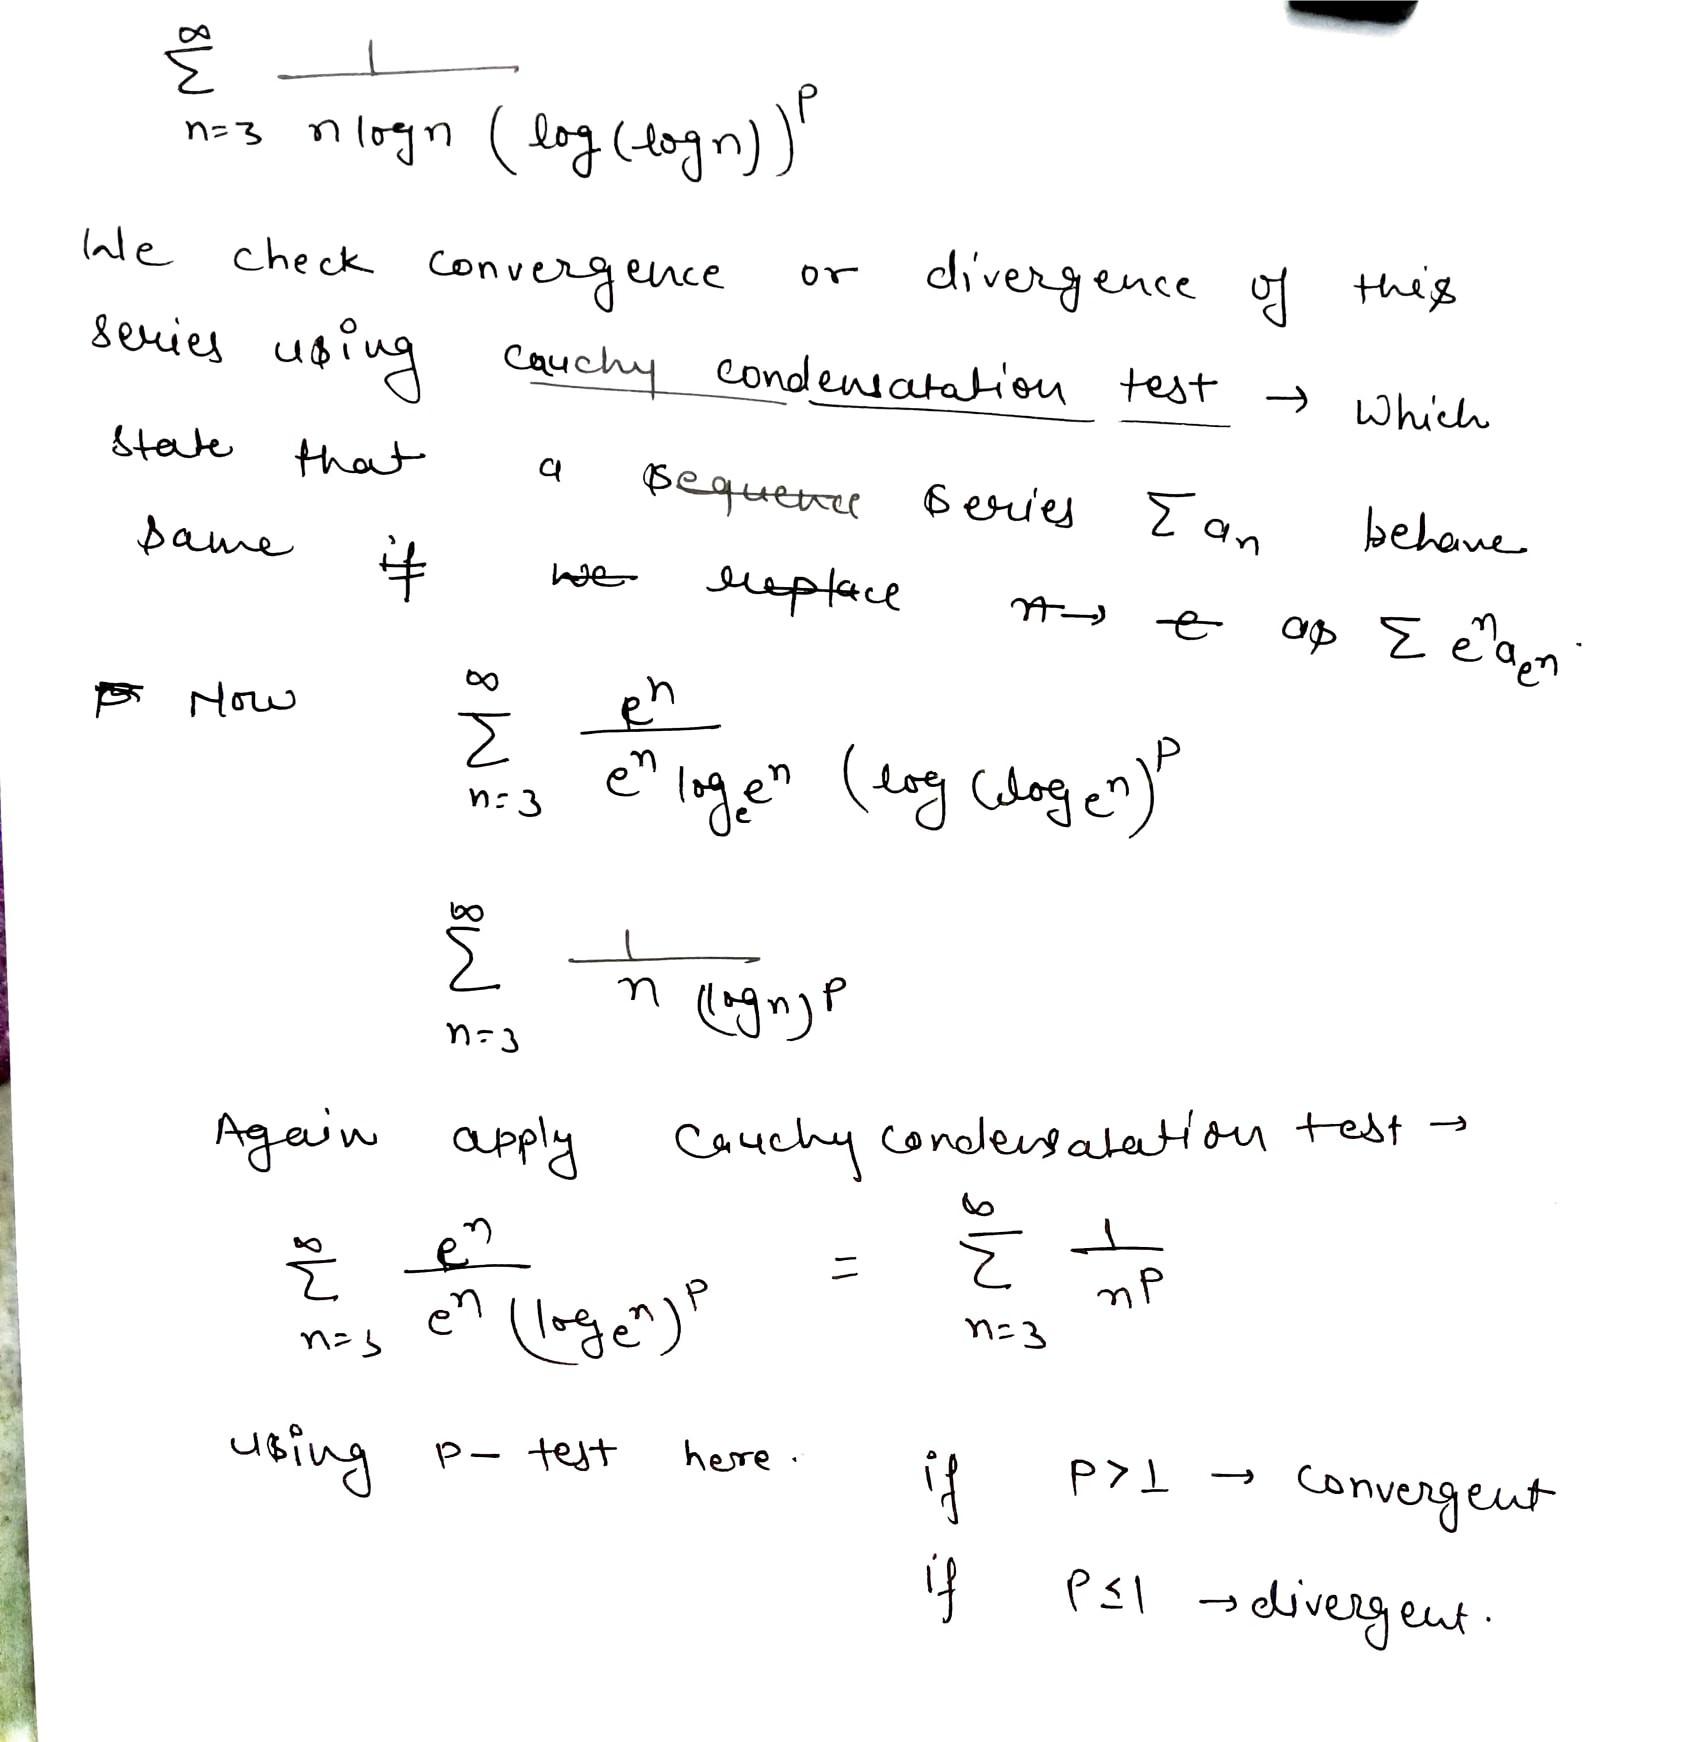 ∞ Σ n=3 1 / n log n (log(log n))^p
We check convergence or divergence of this
series using cauchy condensatation test → which
state that a sequence series Σ an behave
same if we replace n→ e as Σ e^n a_e^n.
Now ∞ Σ n=3 e^n / e^n log_e e^n (log(log e^n)^p
∞ Σ n=3 1 / n (log n)^p
Again apply Cauchy condensatation test →
∞ Σ n=3 e^n / e^n (log e^n)^p = ∞ Σ n=3 1 / n^p
using p- test here. if p>1 → convergent
if p≤1 → divergent.